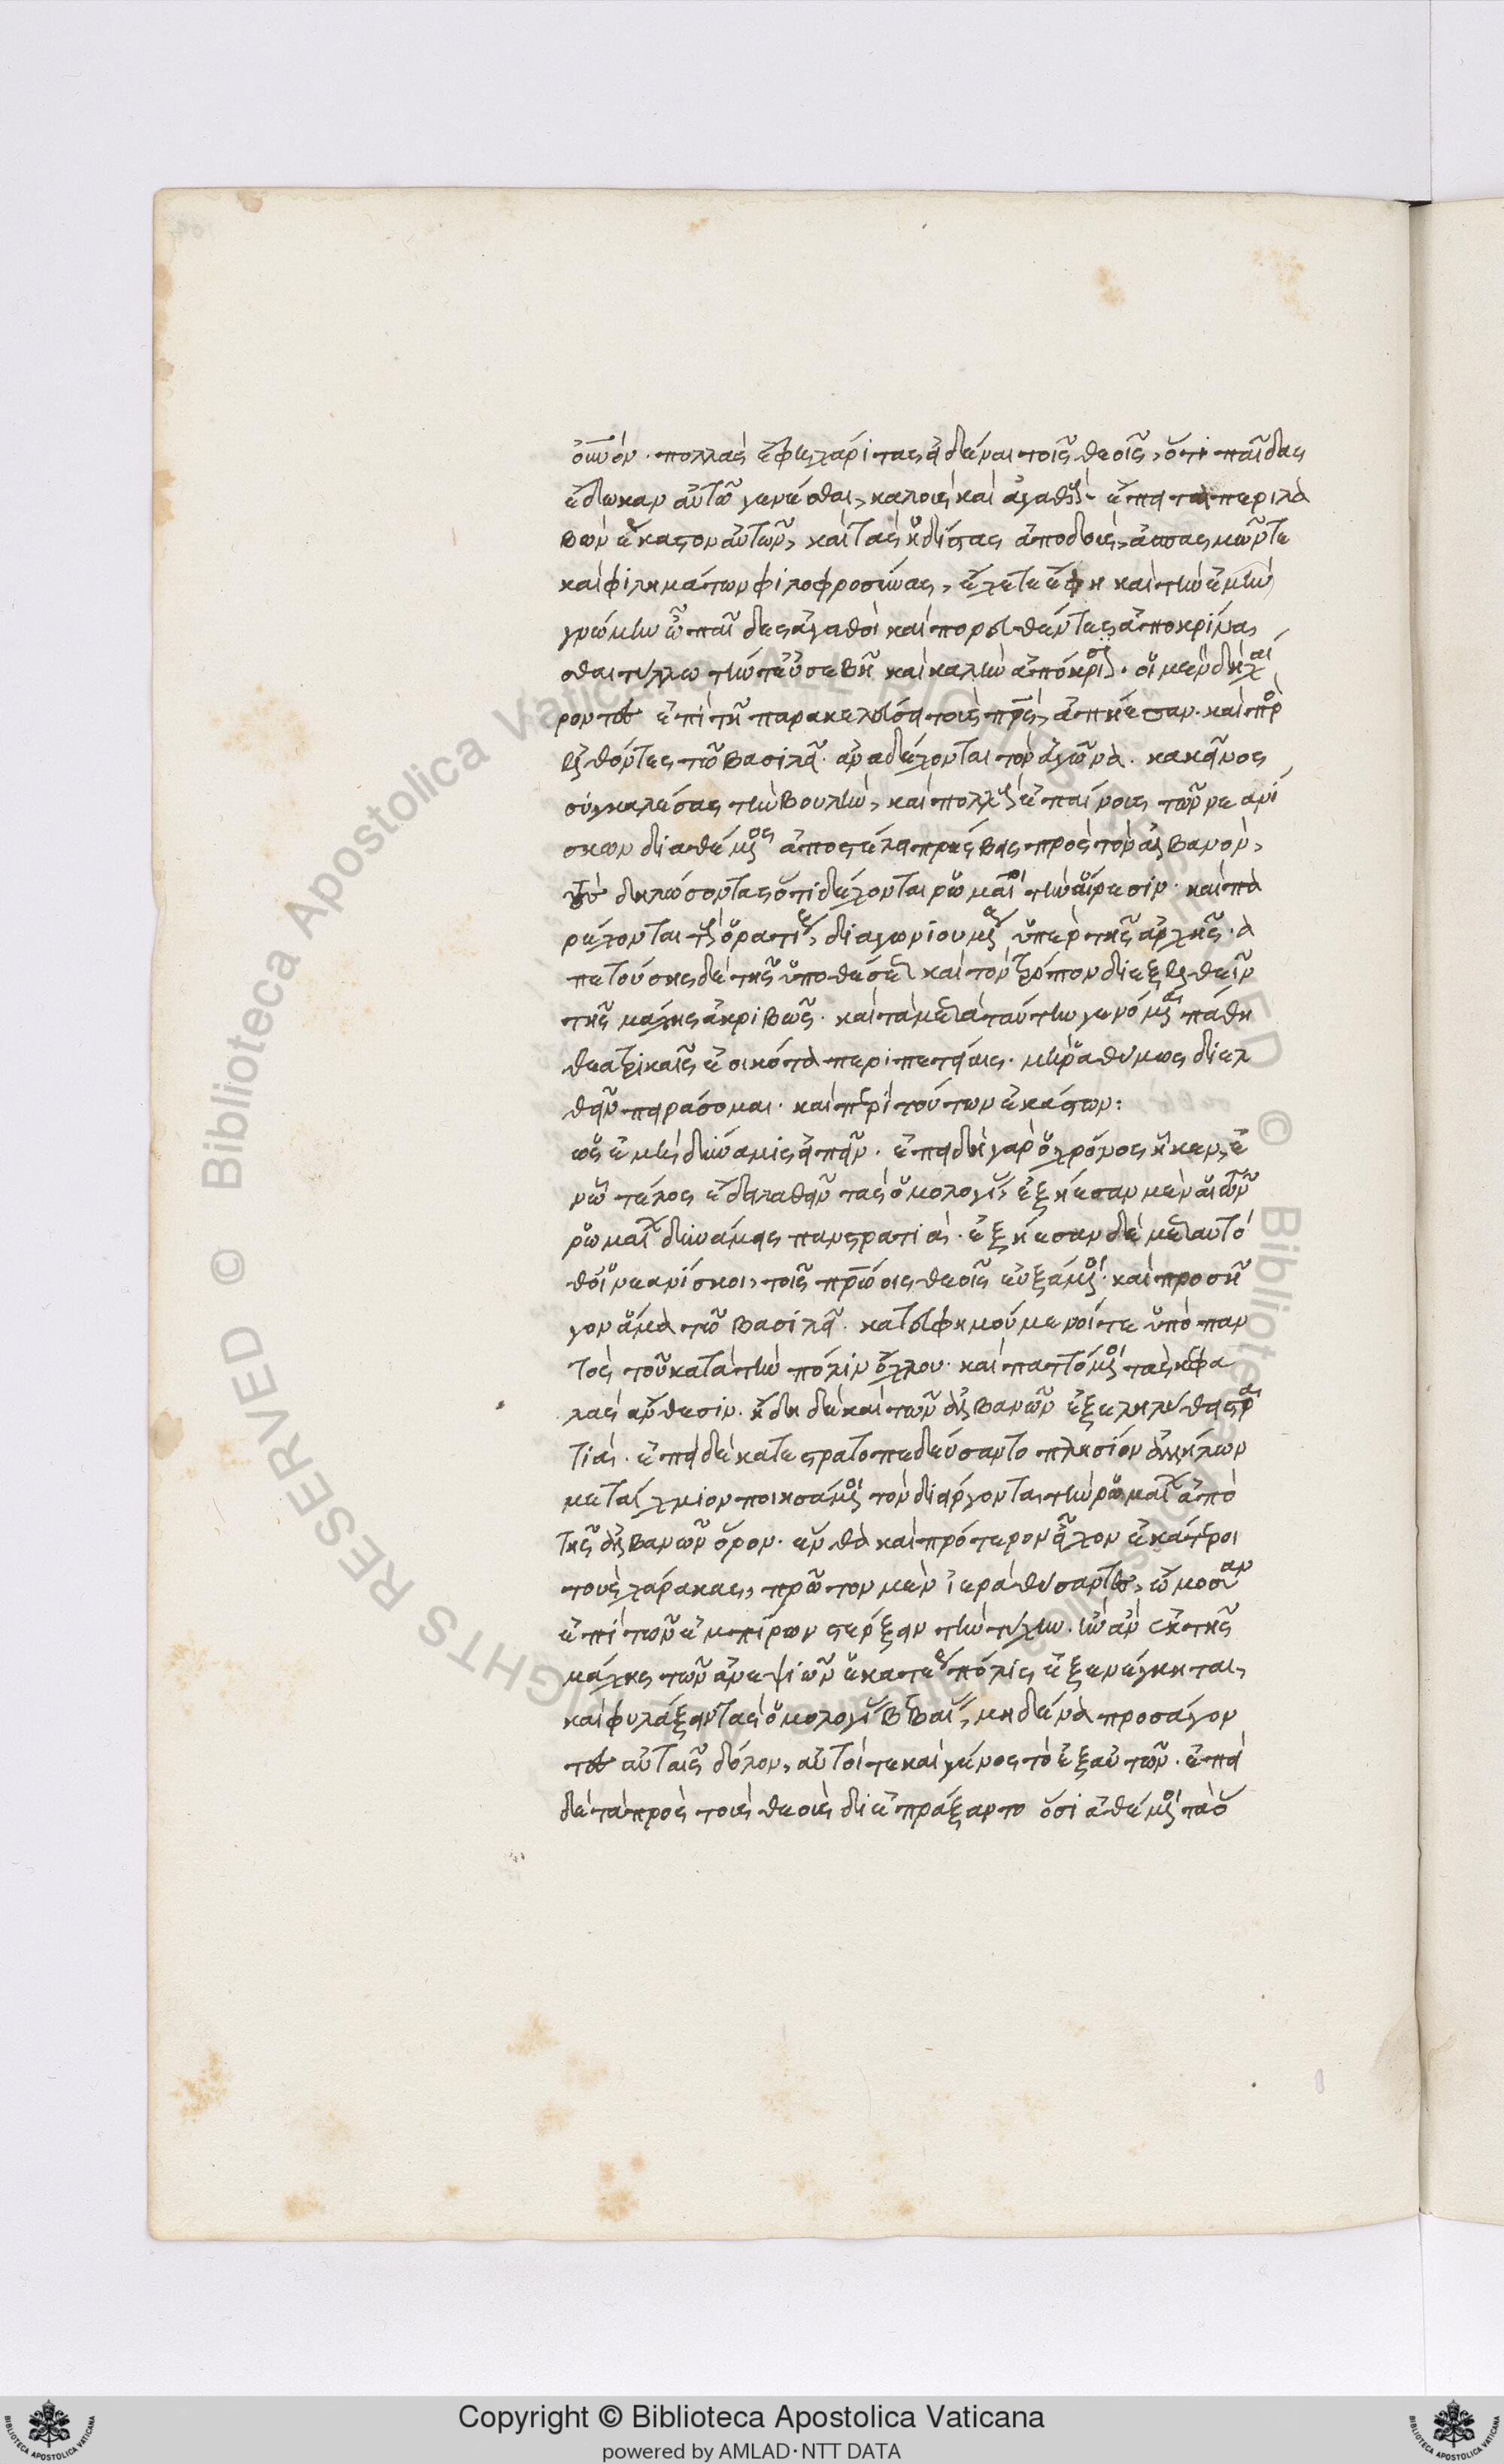 οὐνόν· πολλὰς ἔφη χάριτας εἰδέναι τοῖς θεοῖς, ὅτι παῖδας
ἔδωκαν αὐτῶ γενέσθαι, καλοὺς καὶ ἀγαθούς· ἔπειτα περιλα
βὼν ἕκαστον αὐτῶν, καὶ τὰς ἡδίστας ἀποδοὺς, ἀσπασμῶν τε
καὶ φιλημάτων φιλοφροσύνας, ἔχετε ἔφη καὶ τὴν ἐμὴν
γνώμην ὦ παῖδες ἀγαθοὶ καὶ πορευθέντες ἀποκρίνα
σθαι τύλλω τὴν τ' εὐσεβῆ καὶ καλὴν ἀπόκρισιν· οἱ μὲν δὴ χαί
ροντες ἐπὶ τῆ παρακελεύσει τοῦ πρς, ἀπῄεσαν· καὶ προ
ελθόντες τῶ βασιλεῖ· ἀναδέχονται τὸν ἀγῶνα. κακεῖνος
συγκαλέσας τὴν βουλὴν, καὶ πολλοὺς ἐπαίνους τῶν νεανί
σκων διαθέμενος ἀποστέλει πρέσβεις πρὸς τὸν ἀλβανὸν,
τοὺς δηλώσοντας ὅτι δέχονται ῥωμαῖοι τὴν αἵρεσιν· καὶ πα
ρέχονται τοὺς ὁρατίους, διαγωνιουμένους ὑπὲρ τῆς ἀρχῆς. ἀ
πετούσης δὲ τῆς ὑποθέσεως καὶ τὸν τρόπον διεξελθεῖν
τῆς μάχης ἀκριβῶς· καὶ τὰ μετὰ ταύτην γενόμενα πάθη
θεατρικαῖς ἐοικότα περιπετείαις· μὴ ῥαθύμως διελ
θεῖν πειράσομαι· καὶ περὶ τούτων ἑκάστων:
ὡς ἐμὴ δύναμις εἰπεῖν. ἐπειδὴ γὰρ ὁ χρόνος ἧκεν, ἐ
νῶ τέλος ἔδει λαβεῖν τὰς ὁμολογίας, ἐξῄεσαν μὲν αἱ τῶν
ῥωμαίων δυνάμεις πανστρατιᾶ. ἐξῄεσαν δὲ μεταυτὸ
θ' οἱ νεανίσκοι, τοῖς πρώοις θεοῖς εὐξάμενοι· καὶ προσῆ
γον ἅμα τῶ βασιλεῖ. κατευφημούμενοί τε ὑπὸ παν
τὸς τοῦ κατὰ τὴν πόλιν ὄχλου· καὶ παττόμενοι τὰς κεφα
λὰς ἄνθεσιν. ἤδη δὲ καὶ τῶν ἀλβανῶν ἐξεληλύθει στρα
τιά. ἐπεὶ δὲ κατεστρατοπεδεύσαντο πλησίον ἀλλήλων
μεταίχμιον ποιησάμενοι τὸν διείργοντα τὴν ῥωμαίων ἀπὸ
τῆς ἀλβανῶν ὅρον· ἔνθα καὶ πρότερον εἶχον ἑκάτεροι
τοὺς χάρακας, πρῶτον μὲν ἱερὰ θύσαντες, ὤμοσαν
ἐπὶ τῶν ἐμπύρων στέρξειν τὴν τύχην. ἣν ἂν ἐκ τῆς
μάχης τῶν ἀνεψιῶν ἑκατέρα πόλις ἐξενέγκηται,
καὶ φυλάξειν τὰς ὁμολογίας βεβαίας, μηδένα προσάγον
τες αὐταῖς δόλον, αὐτοί τε καὶ γένος τὸ ἐξ αὐτῶν. ἐπεὶ
δὲ τὰ πρὸς τοὺς θεοὺς διεπράξαντο ὅσια θέμενοι τὰ ὅ